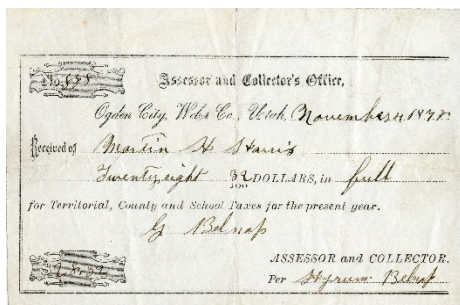 No. 688
Assessor and Collector's Office,
Ogden City, Web. Co., Utah, November 4, 187
Received of Martin H Harris
Twenty eight 32/100 DOLLARS, in full
for Territorial, County and School Taxes for the present year.
G Belnap
ASSESSOR and COLLECTOR.
$28.32
Per Hyrum Belnap